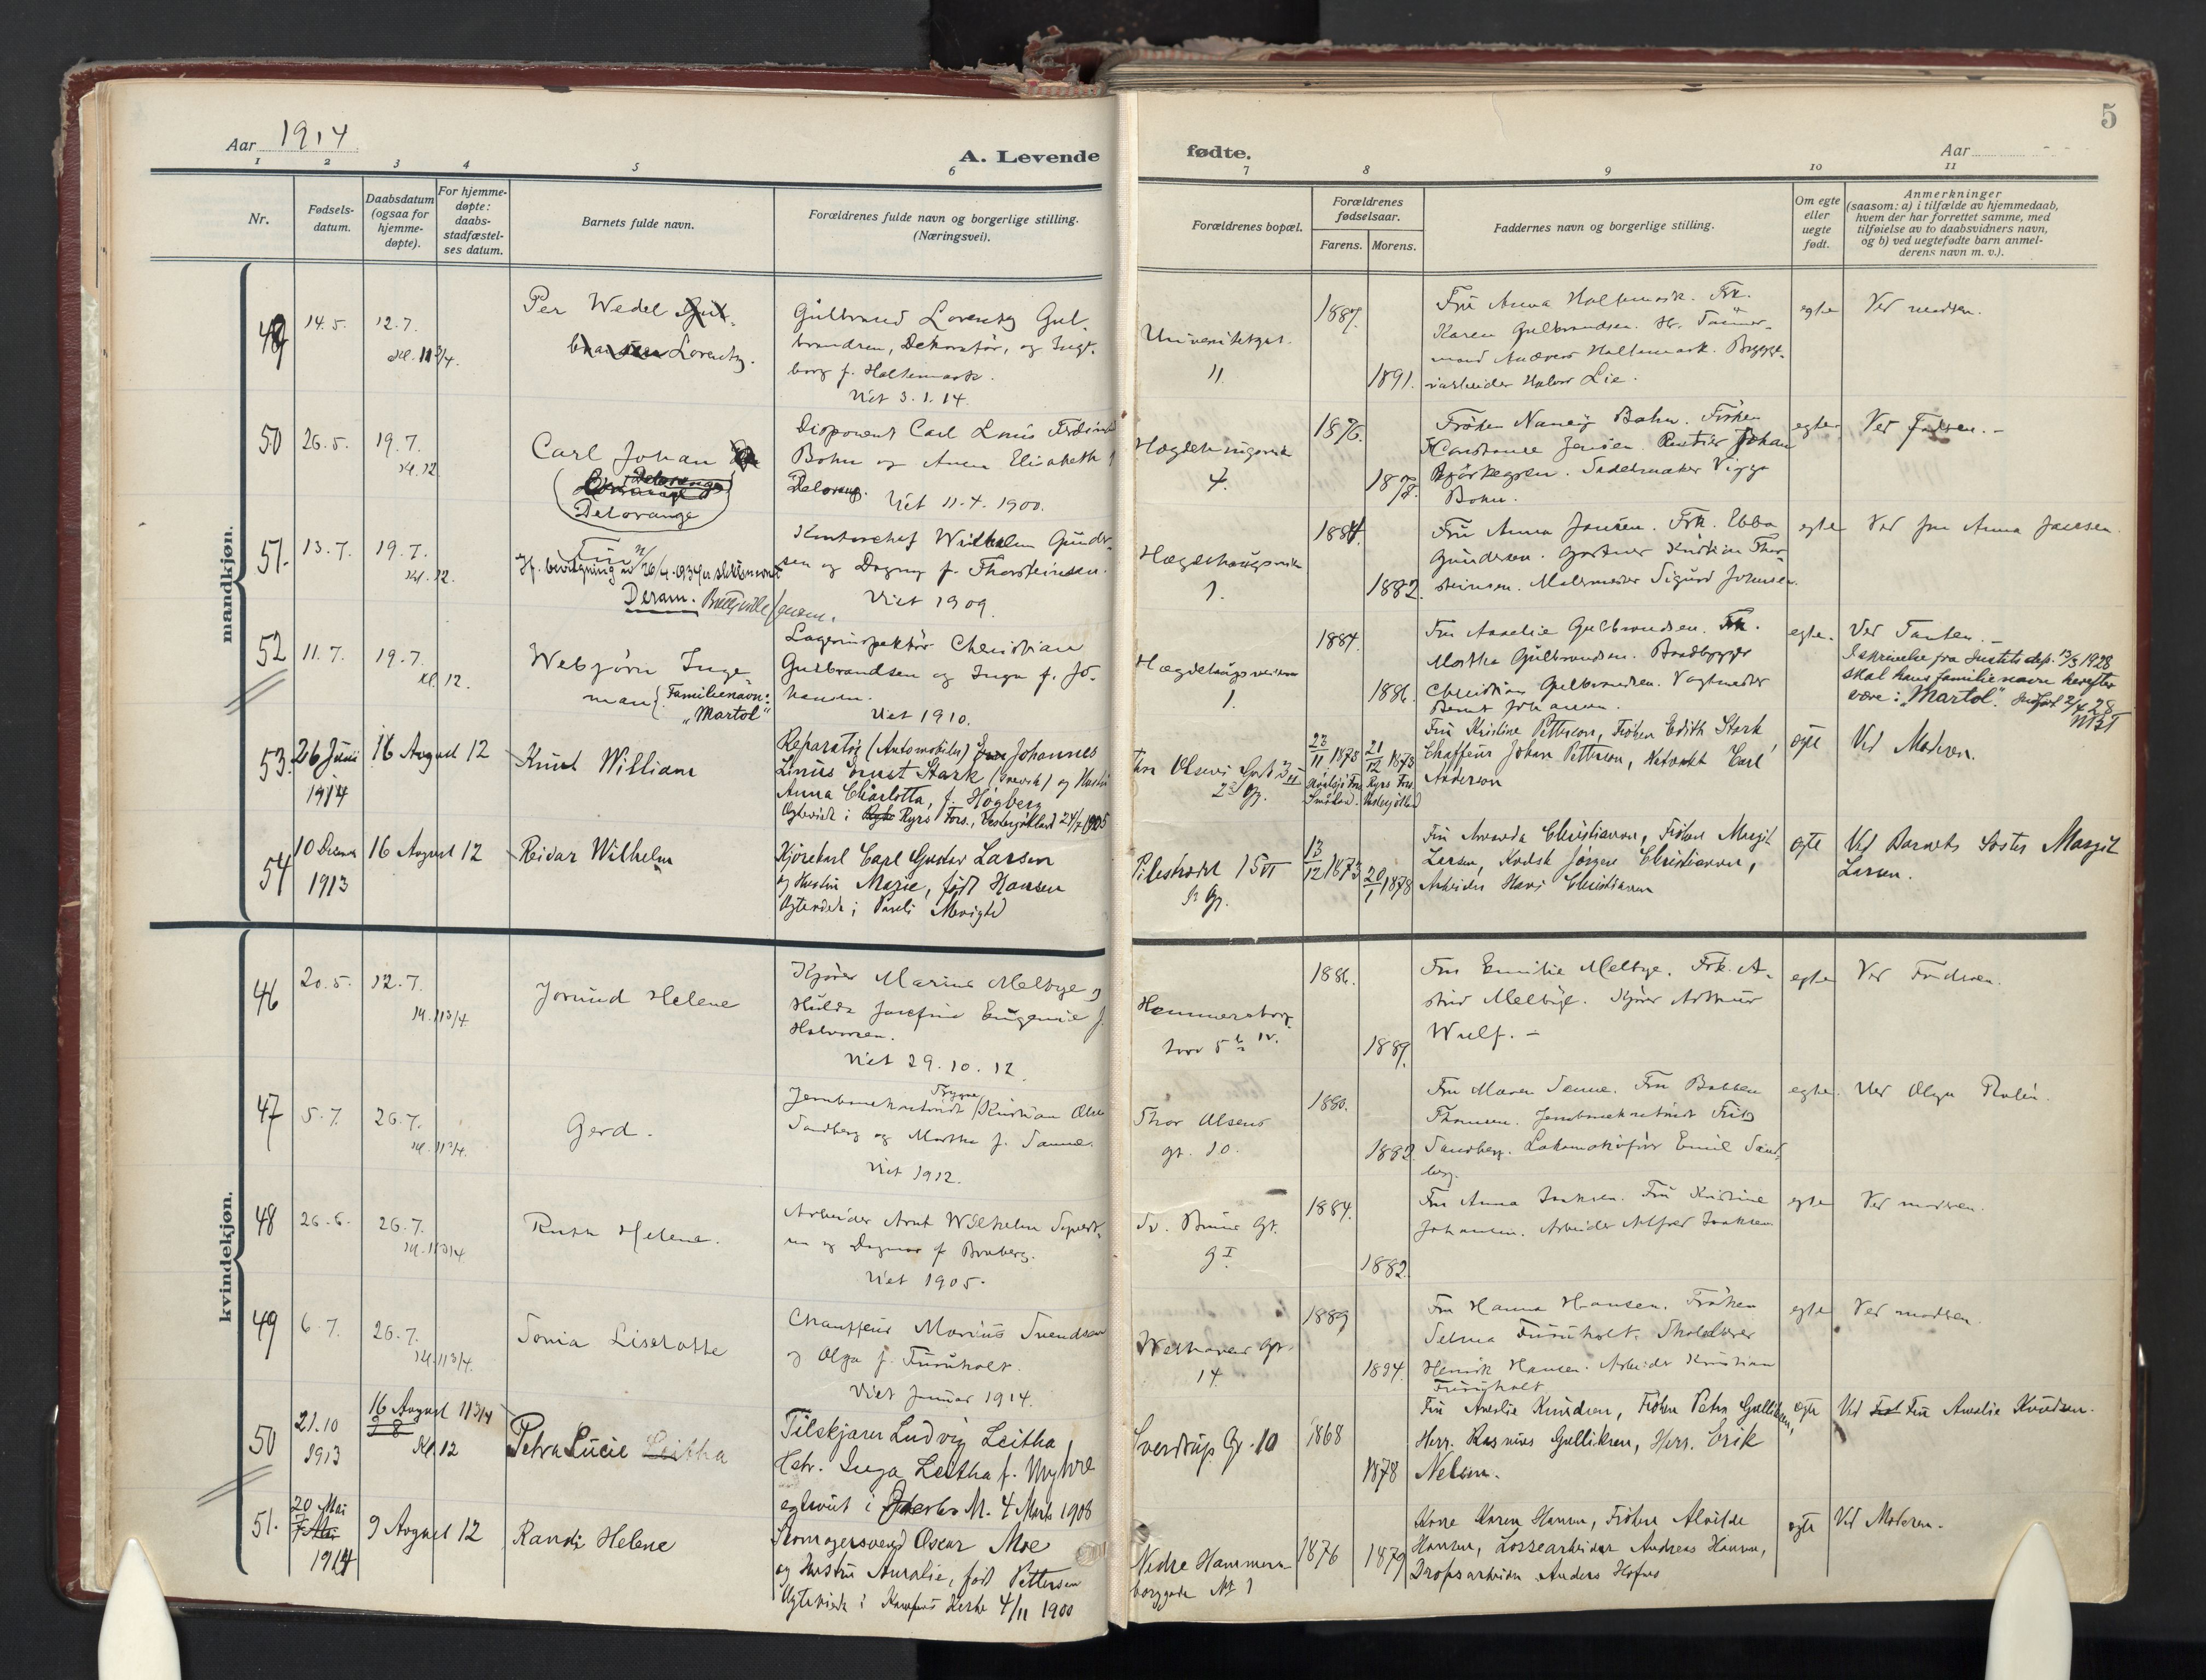 Aar 1914
A. Levende
fødte.
Aar
5
1
2
3
4
5
6
7
8
9
10
11
Nr.
Fødsels-
datum.
Daabsdatum
(ogsaa for
hjemme-
døpte).
For hjemme-
døpte:
daabs-
stadfæstel-
ses datum.
Barnets fulde navn.
Forældrenes fulde navn og borgerlige stilling.
(Næringsvei).
Forældrenes bopæl.
Forældrenes
fødselsaar.
Farens.
Morens.
Faddernes navn og borgerlige stilling.
Om egte
eller
uegte
født.
Anmerkninger
(saasom: a) i tilfælde av hjemmedaab,
hvem der har forrettet samme, med
tilføielse av to daabsvidners navn,
og b) ved uegtefødte barn anmel-
derens navn m. v.).
mandkjøn.
49
14.5.
12.7.
Kl. 11 3/4.
Per Wedel
Lorentz.
Gulbrand Lorentz Gul-
brandsen, Dekoratør, og Inge-
borg f. Holtemark.
Viet 3.1.14
Universitetsgt.
11.
1889.
1891.
Fru Anna Holtemark. Frk.
Karen Gulbrandsen. Hr. Tømmer-
mand Andreas Holtemark. Brygge-
riarbeider Halvor Lie.
egte
Ved modren.
50
26.5.
19.7.
Kl. 12
Carl Johan
Delorange
Delorange
Disponent Carl Louis Ferdinand
Bohn og Anna Elisabeth f
Delorang. Viet 11.4.1900.
Hægdehaugsveien
4.
1876.
1878.
Frøken Nancy Bohn. Frøken
Constance Jensen. Rentier Johan
Bjørkegren. Sadelmaker Viggo
Bohn.
egte
Ved Fadren.-
51.
13.7.
19.7.
Kl. 12.
Finn
If. bevilgning av 26/4.1934 er slektsnavnet
Deram.
Kontorchef Wilhelm Gunder-
sen og Dagny f. Thorsteinsen.
Viet 1909.
Hægdehaugsveien
1.
1884.
1882.
Fru Anna Jansen. Frk. Ebba
Gundersen. Gartner Kristian Thor-
steinsen. Malermester Sigurd Johnsen.
egte
Ved fru Anna Jansen.
52
11.7.
19.7.
Kl. 12.
Webjørn Inge-
man { Familienavn:
"Martol"
Lagerinspektør Christian
Gulbrandsen og Inga f. Jo-
hansen.
Viet 1910.
Hægdehaugsveien
1.
1884.
1886.
Fru Amalie Gulbrandsen. Frk.
Martha Gulbrandsen. Baadbygger
Christian Gulbrandsen. Vagtmester
Bernt Johansen.
egte.
Ved Tanten.-
I skrivelse fra Justitsdep. 13/3 1928
skal hans familienavn herefter
være: "Martol". Indført 2/4 28
53.
26 Juni
1914
16 August 12
Knut William
Reparatør (Automobiler) Johannes
Linus Ernst Stark (svensk) og Hustru
Anna Charlotta, f. Høgberg
Ægteviet i Ryrs Fors., Vestergøtland 24/7 1905
Thv Olsens Gade 3 II
2 Op.
23/11 1878
21/12 1873
Ryrs Fors.
Småland.
Vestergøtland
Fru Kristine Petterson, Frøken Edith Stark,
Chaffeur Johan Petterson, Carl
Anderson
egte
Ved Moderen.
54
10 Decmb
1913
16 August 12
Reidar Wilhelm
Kjørekarl Carl Gustav Larsen
og Hustru Marie, født Hansen
Ægteviede i Menighed
Pilestrædet 15 VI
Op.
13/12 1873
20/1 1878
Fru Amanda Christiansen, Frøken Margit
Larsen, Kudsk Jørgen Christiansen,
Arbeider Hans Christiansen
egte
Ved Barnets Søster Margit
Larsen.
kvindekjøn.
46
20.5.
12.7.
Kl. 11 3/4.
Jorund Helene
Kjører Marius Melbye og
Hulda Josefine Eugenie f.
Halvorsen.
Viet 29.10.12.
Hammersborg
torv 5 b IV.
1886.
1889.
Fru Emilie Melbye. Frk. A-
strid Melbye. Kjører Arthur
Wulf.-
egte
Ved Fadren.
47
5.7.
26.7.
Kl. 11 3/4.
Gerd.
Trygve
Jernbanekontorist Kristian Olsen
Sandberg og Martha f. Sanne.
Viet 1912.
Thor Olsens
gt. 10.
1880.
1882.
Fru Maren Sanne. Fru Bolette
Thomsen. Jernbanekontorist Fritz
Sandberg. Lokomotivfører Emil Sand-
berg.
egte.
Ved Olga Thalin.
48
26.6.
26.7.
Kl. 11 3/4
Ruth Helene.
Arbeider Arnt Wilhelm Syvert-
sen og Dagmar f. Broberg.
Viet 1905.
Sv. Bruns Gt.
9 I.
1884.
1882.
Fru Anna Isaksen. Fru Kristine
Johansen. Arbeider Alfred Isaksen
egte
Ved modren.
49
6.7.
26.7.
Kl. 11 3/4.
Sonia Liselotte
Chauffeur Marius Svendsen
og Olga f. Furuholt.
Viet Januar 1914.
Wesselsgt.
14.
1889
1894.
Fru Hanna Hansen. Frøken
Selma Furuholt. Skolelærer
Henrik Hansen. Arbeider Kristian
Furuholt
egte
Ved modren.
50
21.10
1913
16 August 11 3/4
9 8
Kl 12
Petra Lucie Leitha
Tilskjærer Ludvig Leitha,
Hstr. Inga Leitha f. Myhre
egteviet i M. 4 Marts 1908
Sverdrups Gt. 10
1868
1878
Fru Amalie Knudsen, Frøken Petra Gulliksen,
Herr. Rasmus Gulliksen, Herr. Erik
Nelson.
egte
Ved Fru Amalie Knudsen.
51.
20 Mai
1914
9 August 12
Randi Helene
Skomagersvend Oscar Moe
og Hustru Auralie, født Pettersen
Ægteviede i Kampens Kirke 4/11 1900
Nedre Hammers-
borggade No 1
1876
1879
Kone Karen Hansen, Frøken Alvilde
Hansen, Lossearbeider Andreas Hansen,
Dropsarbeider Anders Hofnes
egte
Ved Moderen.